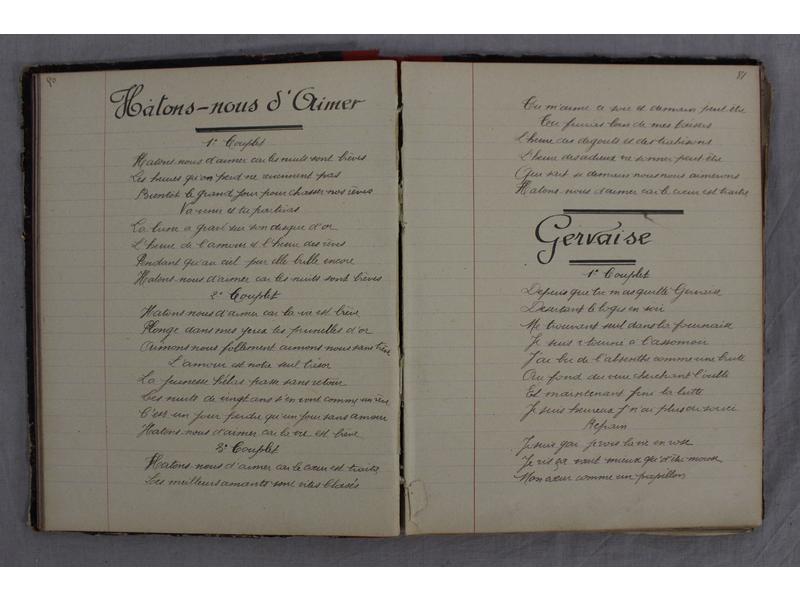 80
Hâtons-nous d'Aimer
1er Couplet
Hatons-nous d'aimer car les nuits sont brèves
Les heures qu'on perd ne reviennent pas
Bientôt le grand jour pour chasser nos rêves
Va venir et tu partiras
La lune a gravé sur son disque d'or
L'heure de l'amour et l'heure des rêves
Pendant qu'au ciel pur elle brille encore
Hatons-nous d'aimer car les nuits sont brèves
2e Couplet
Hatons nous d'aimer car la vie est brève
Plonge dans mes yeux tes prunelles d'or
Aimons nous follement aimons nous sans trêve
L'amour est notre seul trésor
La jeunesse hélas passe sans retour
Les nuits de vingt ans s'en vont comme un rêve
C'est un jour perdu qu'un jour sans amour
Hatons-nous d'aimer car la vie est brève
3e Couplet
Hatons-nous d'aimer car le cœur est traître
Les meilleurs amants sont vites blasés
81
Tu m'aime ce soir et demain peut être
Tu fuiras loin de mes baisers
L'heure des dégouts et des trahisons
L'heure des adieux va sonner peut être
Qui sait si demain nous nous aimerons
Hatons-nous d'aimer car le cœur est traitre
Gervaise
1er Couplet
Depuis que tu m'as quitté Gervaise
Désertant le logis en soir
Me trouvant seul dans la fournaise
Je suis retourné à l'assomoir
J'ai bu de l'absenthe comme une brute
Au fond du verre cherchant l'oubli
Et maintenant fini la lutte
Je suis heureux j'n'ai plus de souci
Refrain
Je suis gai je vois la vie en rose
Je ris ça vaut mieux qu'd'être morose
Mon cœur comme un papillon